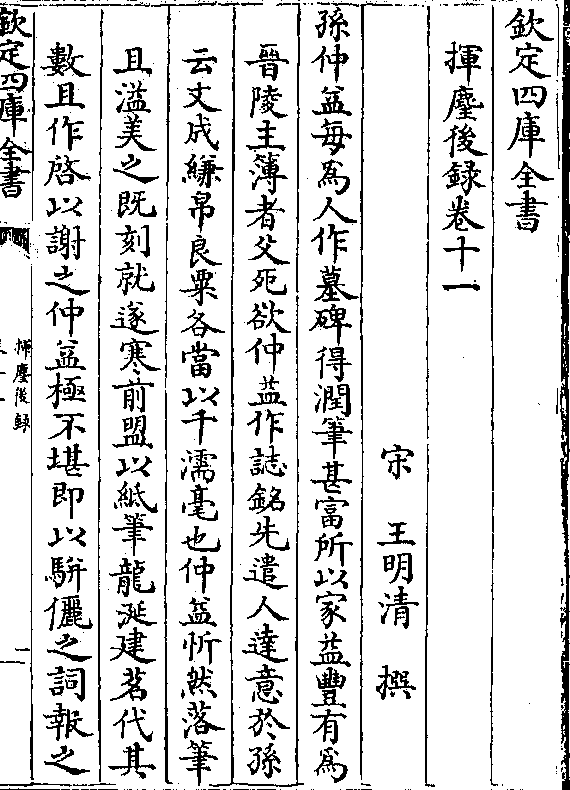 欽定四庫全書
揮麈後録卷十一
宋 王明清 撰
孫仲益每為人作墓碑得潤筆甚富所以家益豐有為
晉陵主簿者父死欲仲益作誌銘先遣人達意於孫
云文成縑帛良粟各當以千濡毫也仲益忻然落筆
且溢美之既刻就遂寒前盟以紙筆龍涎建茗代其
數且作啓以謝之仲益極不堪即以駢儷之詞報之
欽定四庫全書
揮麈後録